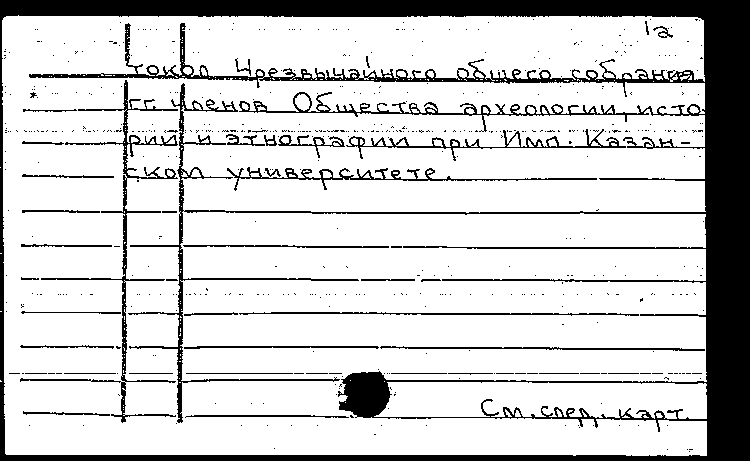 1а
токол Чрезвычайного общего собрания
гг. членов Общества археологии, исто-
рии и этнографии при Имп. Казан-
ском университете.
См. след. карт.